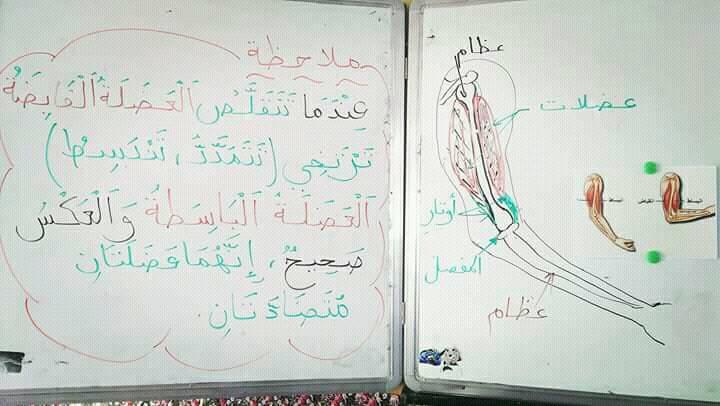 ملاحظة
عِنْدَمَا تَتَقَلَّصُ اَلْعَضَلَةُ اَلْقَابِضَةُ
تَرْتَخِي (تَتَمَدَّدُ، تَنْبَسِطُ)
اَلْعَضَلَةُ اَلْبَاسِطَةُ وَاَلْعَكْسُ
صَحِيحٌ، إِنَّهُمَا عَضَلَتَانِ
مُتَضَادَّتَانِ.
عظام
عضلات
أوتار
المفصل
عظام